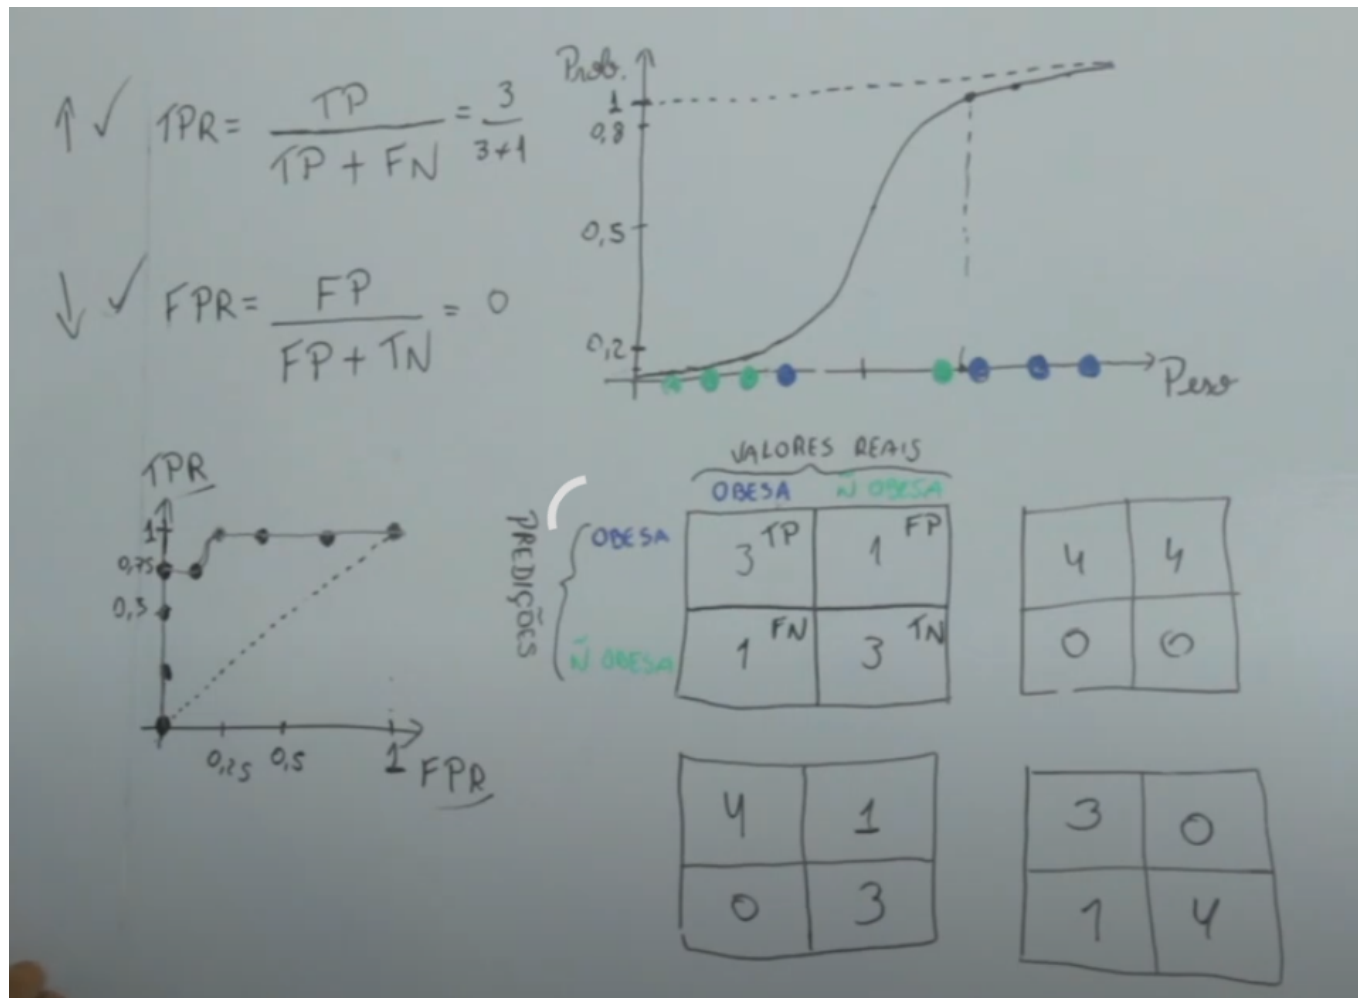 ↑ ✓ TPR = TP / TP + FN = 3 / 3+1
↓ ✓ FPR = FP / FP + TN = 0
Prob.
1
0,8
0,5
0,2
Peso
TPR
1
0,75
0,5
0,25 0,5 1 FPR
VALORES REAIS
OBESA Ñ OBESA
PREDIÇÕES
OBESA
Ñ OBESA
3 TP 1 FP
1 FN 3 TN
4 4
0 0
4 1
0 3
3 0
1 4